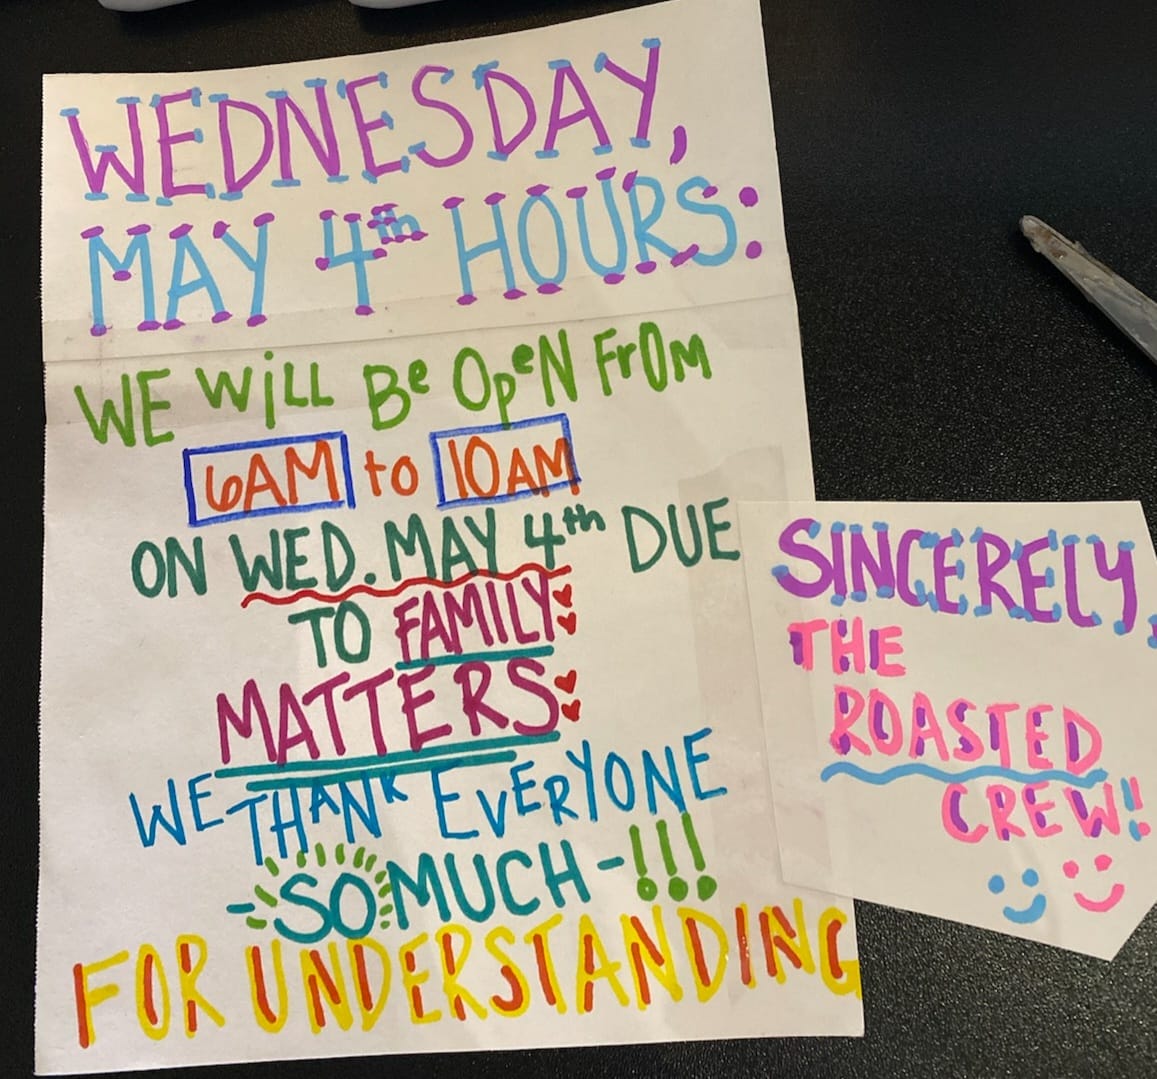 WEDNESDAY,
MAY 4th HOURS:
WE WiLL Be OpeN FrOM
6AM to 10AM
ON WED. MAY 4th DUE
TO FAMILY
MATTERS
WE THANK EVERYONE
-SO MUCH-!!!
FOR UNDERSTANDING
SINCERELY,
THE
ROASTED
CREW!